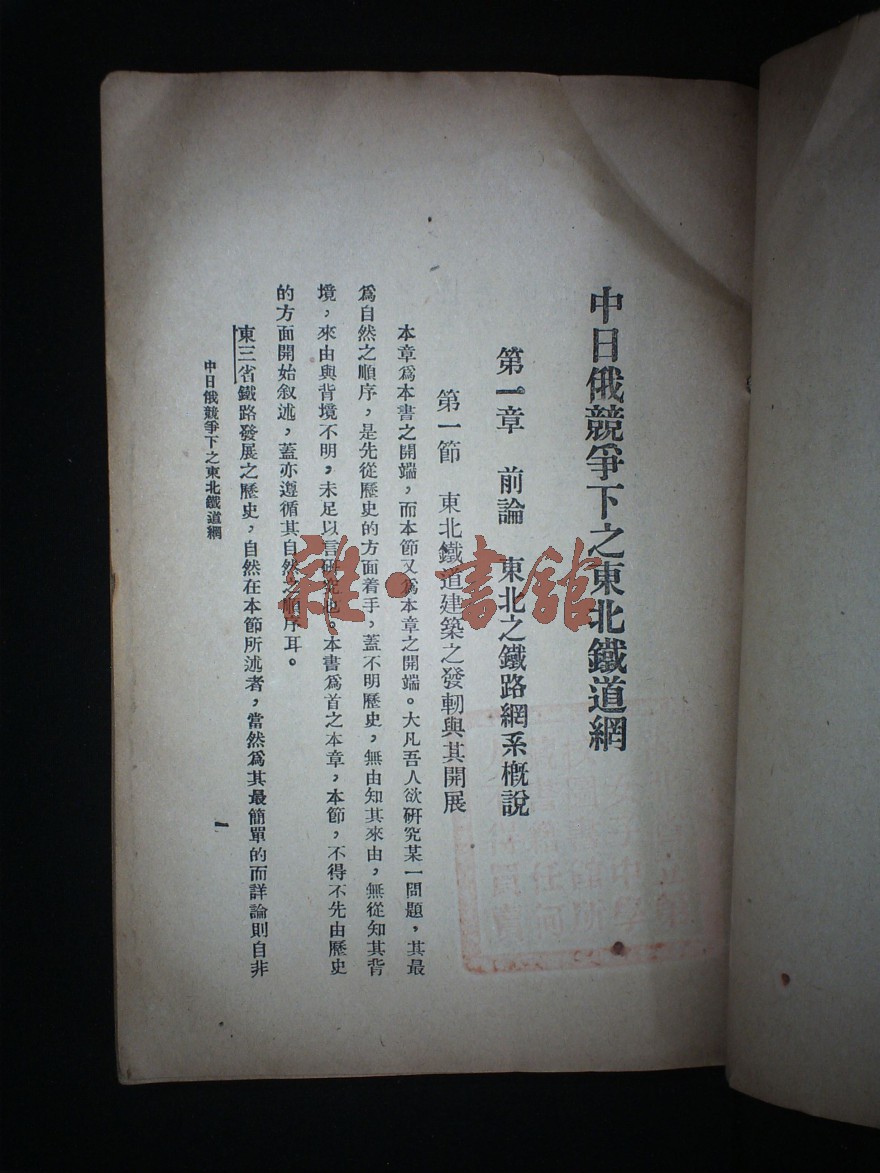 中日俄競爭下之東北鐵道網
第一章　前論　東北之鐵路網系槪說
第一節　東北鐵道建築之發軔與其開展
本章爲本書之開端，而本節又爲本章之開端。大凡吾人欲研究某一問題，其最
爲自然之順序，是先從歷史的方面着手，蓋不明歷史，無由知其來由，無從知其背
境，來由與背境不明，未足以言研究也。本書爲首之本章，本節，不得不先由歷史
的方面開始叙述，蓋亦遵循其自然之順序耳。
東三省鐵路發展之歷史，自然在本節所述者，當然爲其最簡單的而詳論則自非
中日俄競爭下之東北鐵道網
一
雜·書館